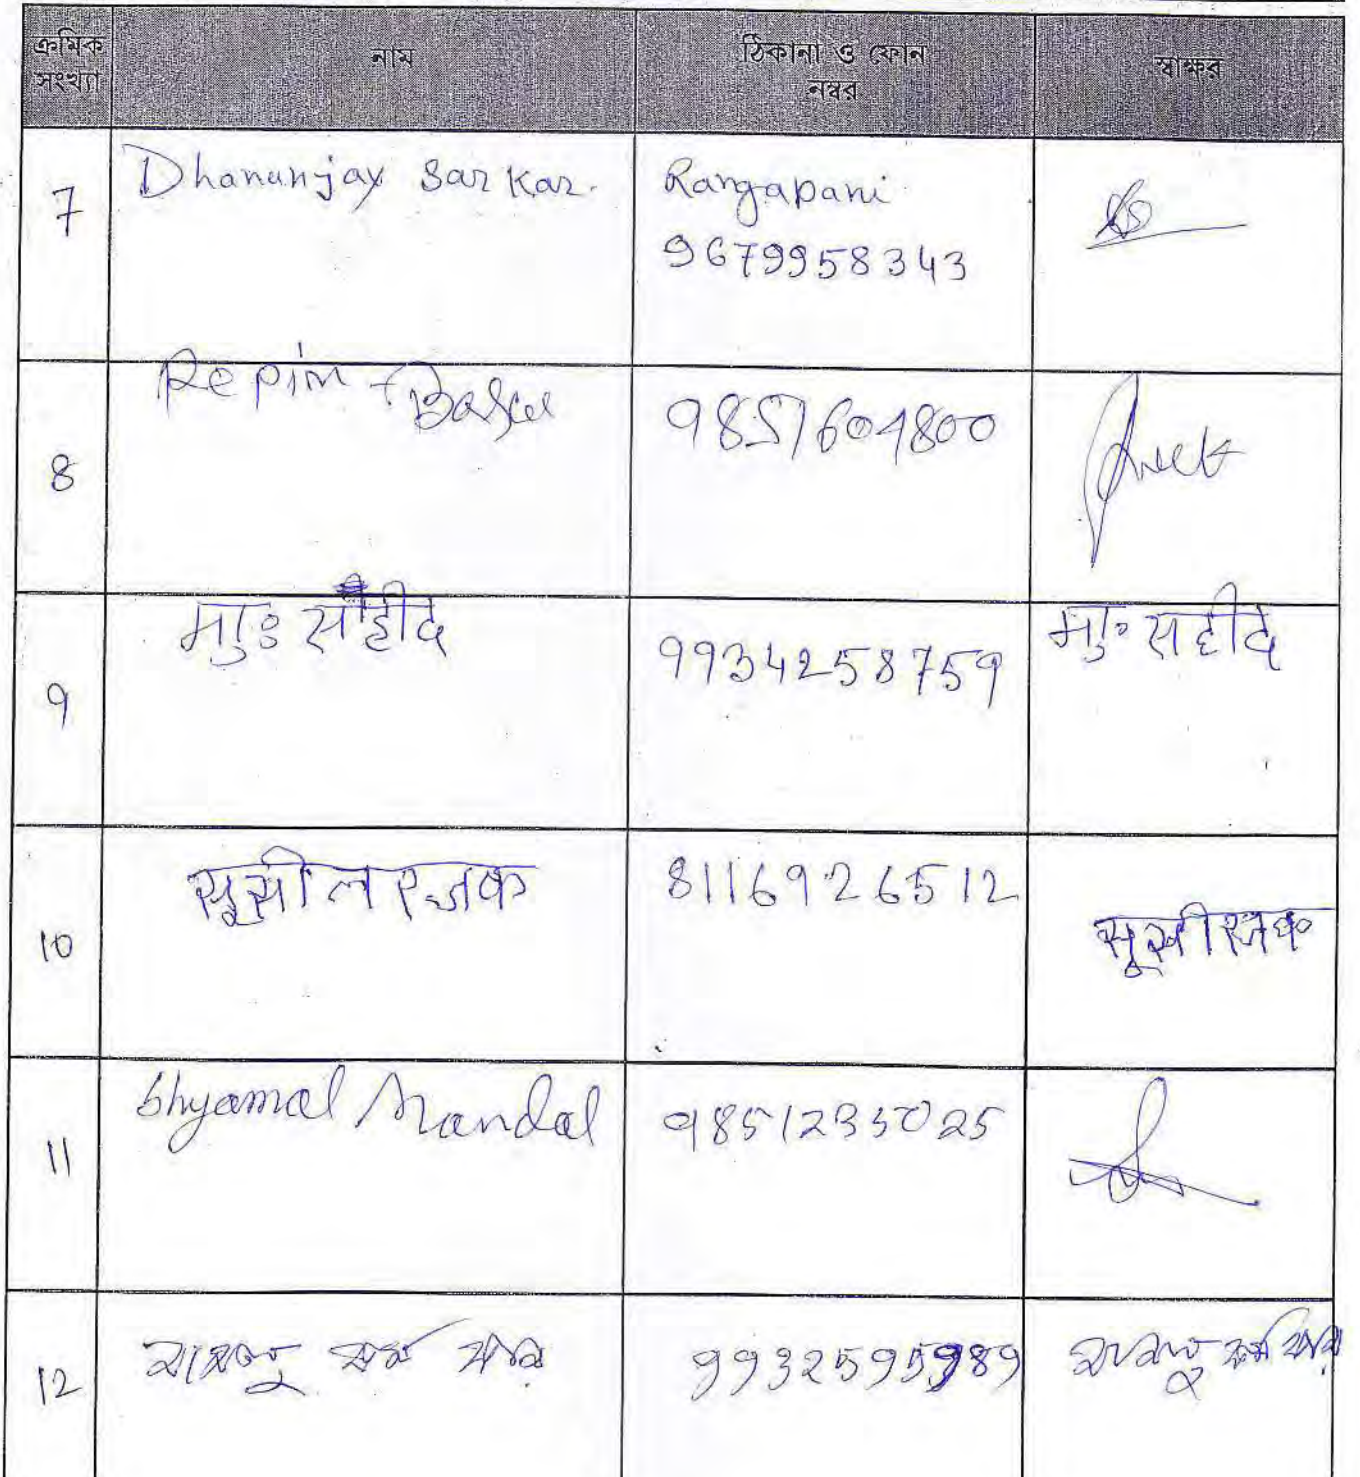 ক্রমিক সংখ্যা নাম ঠিকানা ও ফোন নম্বর স্বাক্ষর
7 Dhananjay Sarkar. Rangapani
9679958343
8 Repin Basu 9851604800
9 मुः सहीद 9934258759 मु॰ सहीद
10 सूसील रजक 8116926512 सूसी रजक
11 Shyamal Mandal 9851235025
12 9932595989